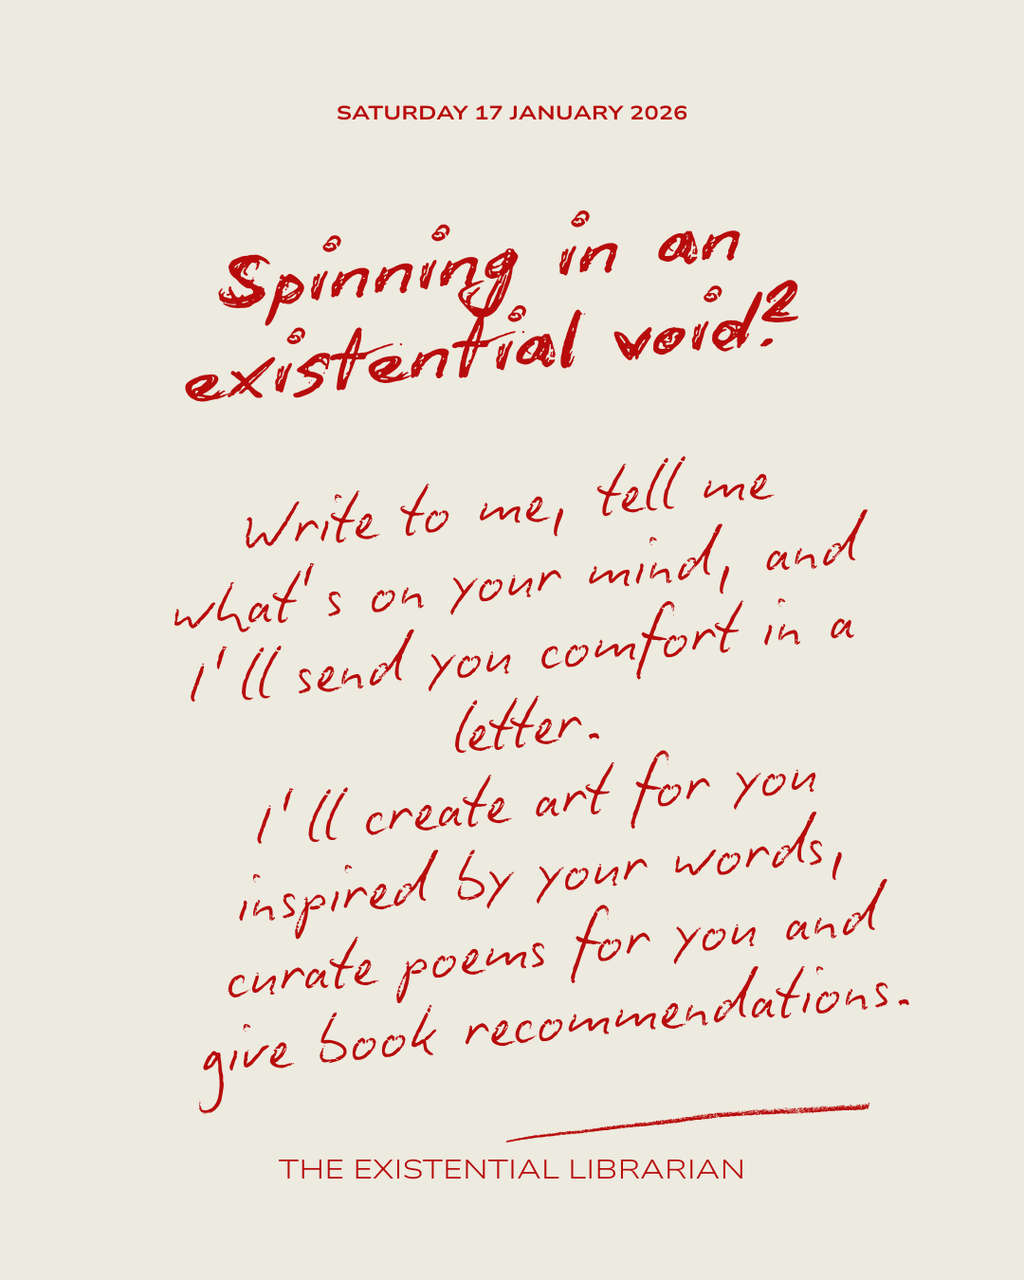 SATURDAY 17 JANUARY 2026
Spinning in an
existential void?
Write to me, tell me
what's on your mind, and
I'll send you comfort in a
letter.
I'll create art for you
inspired by your words,
curate poems for you and
give book recommendations.
THE EXISTENTIAL LIBRARIAN